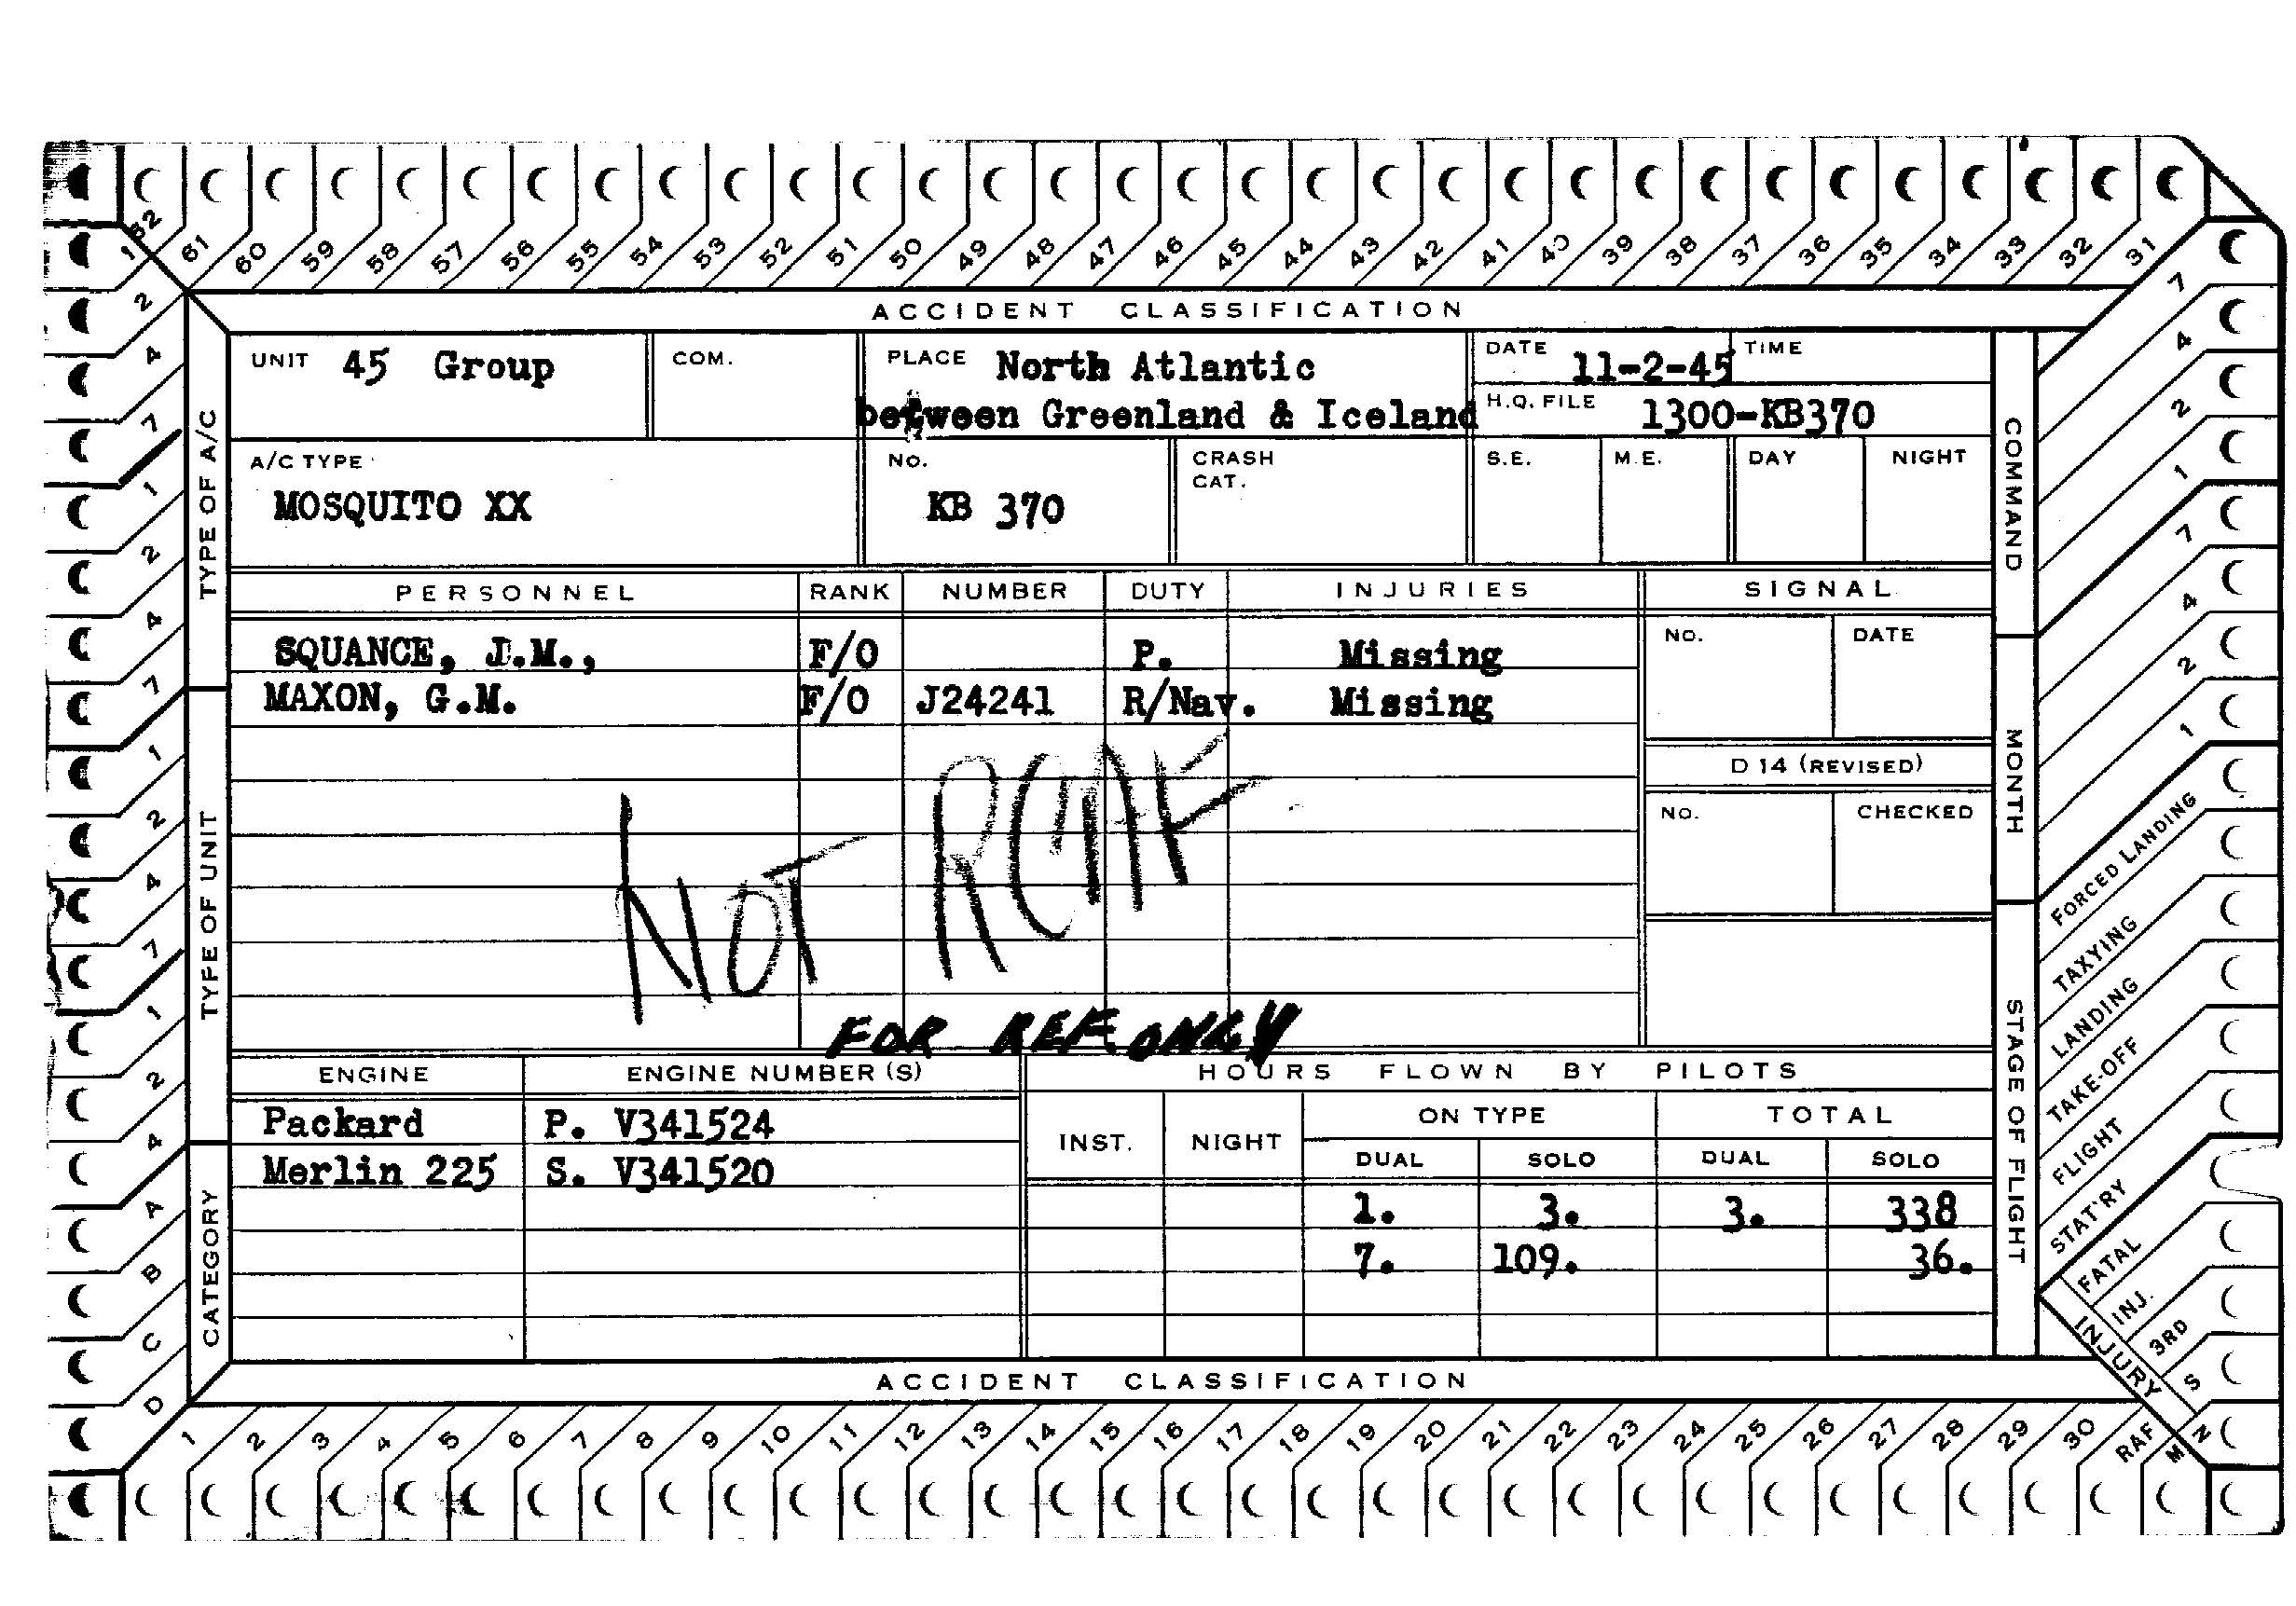 62 61 60 59 58 57 56 55 54 53 52 51 50 49 48 47 46 45 44 43 42 41 40 39 38 37 36 35 34 33 32 31
ACCIDENT CLASSIFICATION
UNIT 45 Group COM. PLACE North Atlantic DATE 11-2-45 TIME
between Greenland & Iceland H.Q. FILE 1300-KB370
A/C TYPE No. CRASH CAT. S.E. M.E. DAY NIGHT
MOSQUITO XX KB 370
PERSONNEL RANK NUMBER DUTY INJURIES SIGNAL
SQUANCE, J.M., F/O P. Missing No. DATE
MAXON, G.M. F/O J24241 R/Nav. Missing
D 14 (REVISED)
No. CHECKED
NOT RCAF
FOR REF ONLY
ENGINE ENGINE NUMBER (S) HOURS FLOWN BY PILOTS
Packard P. V341524 INST. NIGHT ON TYPE TOTAL
Merlin 225 S. V341520 DUAL SOLO DUAL SOLO
1. 3. 3. 338
7. 109. 36.
ACCIDENT CLASSIFICATION
1 2 3 4 5 6 7 8 9 10 11 12 13 14 15 16 17 18 19 20 21 22 23 24 25 26 27 28 29 30 RAF M N
TYPE OF A/C
1 2 4 7 1 2 4 7
TYPE OF UNIT
1 2 4 7 1 2 4
CATEGORY
A B C D
COMMAND
7 4 2 1
MONTH
7 4 2 1
STAGE OF FLIGHT
FORCED LANDING
TAXYING
LANDING
TAKE-OFF
FLIGHT
STAT'RY
FATAL
INJ.
3RD
S
INJURY